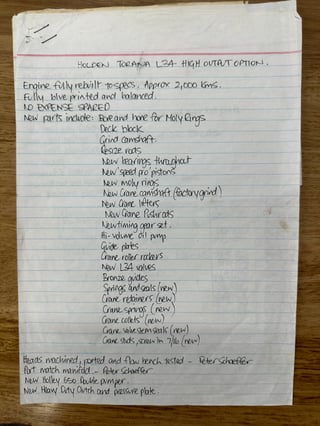 HOLDEN TORANA L34 HIGH OUTPUT OPTION.
Engine fully rebuilt to specs. Approx 2,000 kms.
Fully blue printed and balanced.
NO EXPENSE SPARED
New parts include: Bore and hone for Moly Rings
Deck block
Grind camshaft.
Resize rods
New bearings throughout
New speed pro pistons
New moly rings
New Crane camshaft (factory grind)
New Crane lifters
New Crane Pushrods
New timing gear set.
Hi-volume oil pump
Guide plates
Crane roller rockers
New L34 valves
Bronze guides
Springs and seals (new)
Crane retainers (new)
Crane springs (new)
Crane collets (new)
Crane valve stem seals (new)
Crane studs, screw in 7/16 (new)
Heads machined, ported and flow bench tested - Peter Schaeffer
Port match manifold - Peter Schaeffer
New Holley 650 double pumper.
New Heavy Duty Clutch and pressure plate.